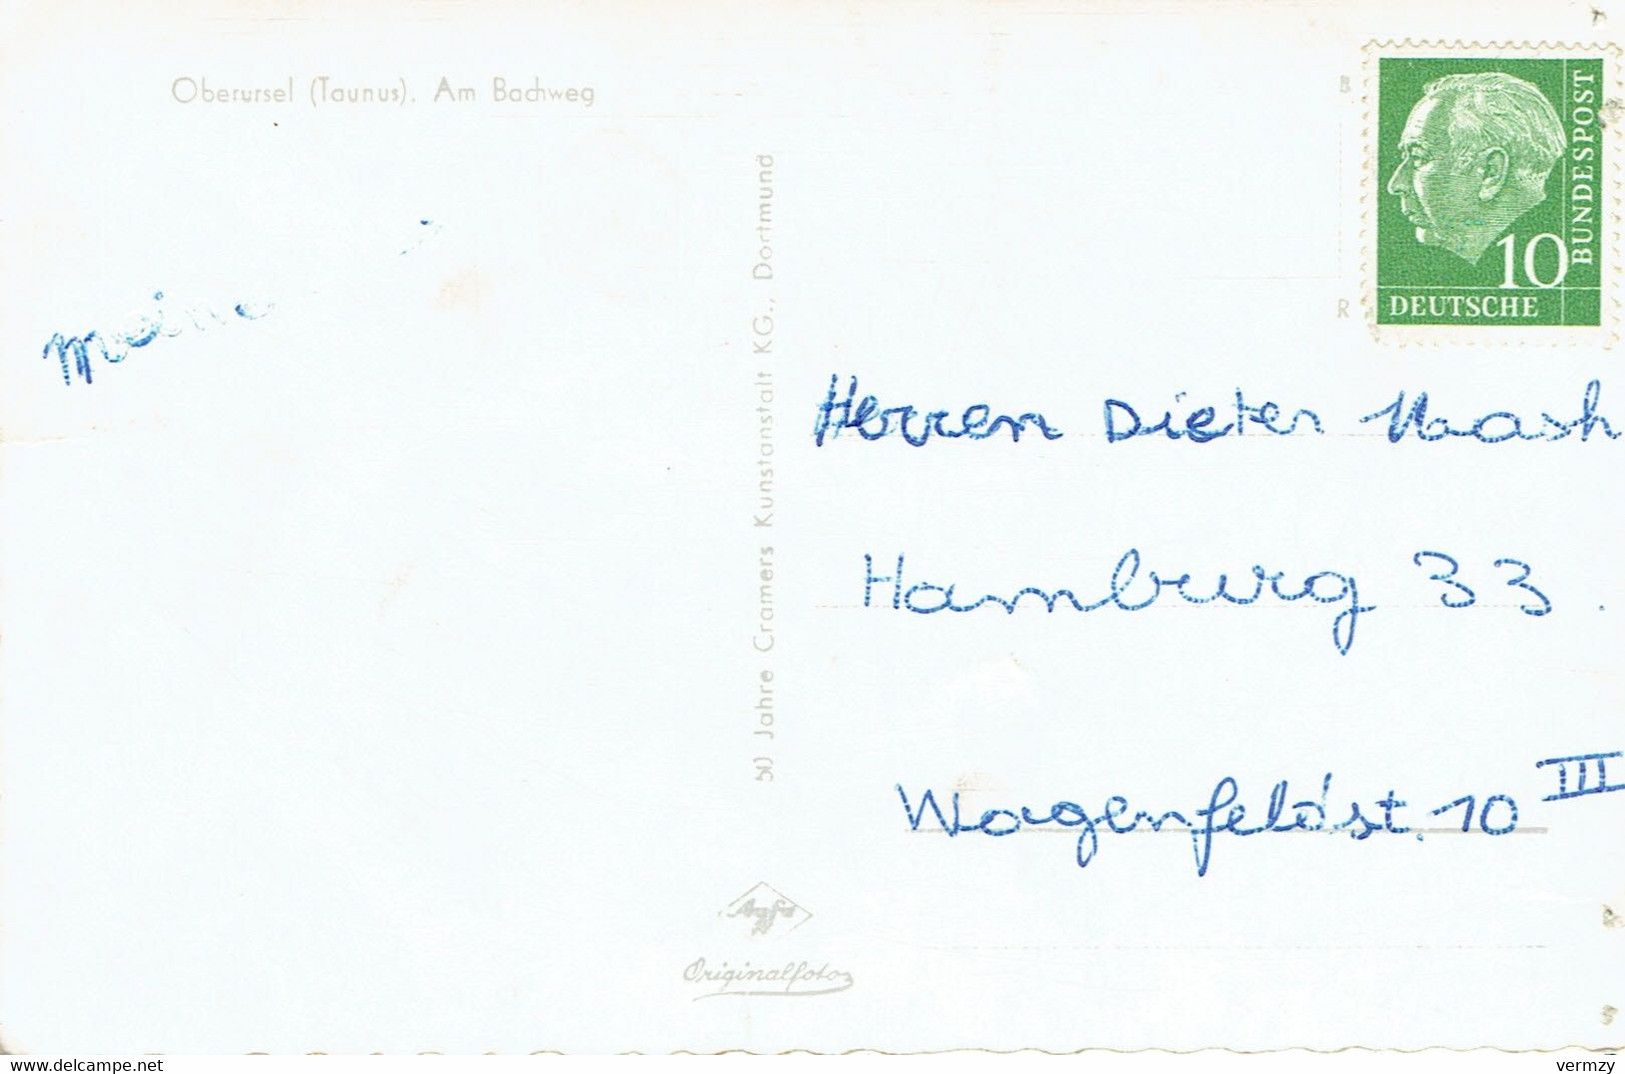 Oberursel (Taunus). Am Bachweg
B
R
BUNDESPOST
10
DEUTSCHE
Meine
50 Jahre Cramers Kunstanstalt KG., Dortmund
Herren Dieter Maash
Hamburg 33.
Wagenfeldst. 10 III
Agfa
Originalfoto
www.delcampe.net
vermzy